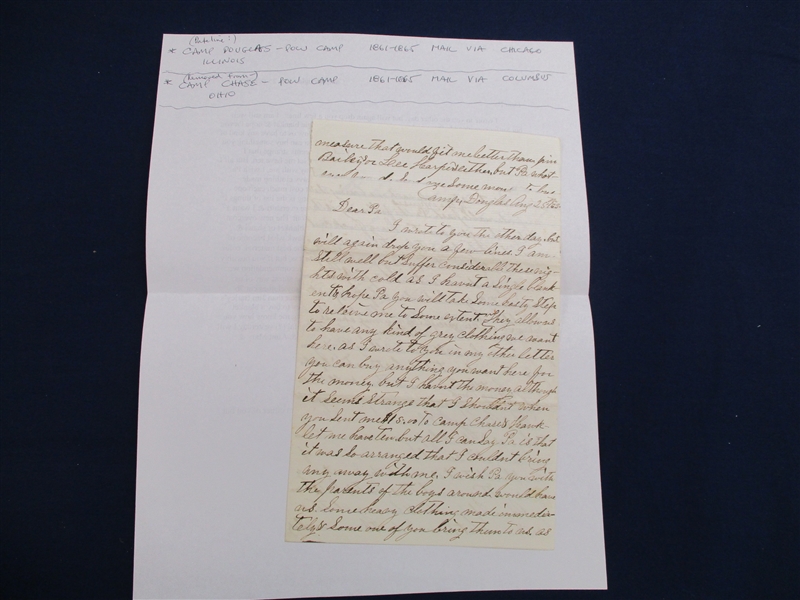 (Puteline!)
* CAMP DOUGLAS - POW CAMP 1861-1865 MAIL VIA CHICAGO
ILLINOIS
* CAMP CHASE - POW CAMP 1861-1865 MAIL VIA COLUMBUS
OHIO
measure that would fit me better than
Bailey or Lee Harpise either but Pa what
some more to
Camp Douglas Aug
Dear Pa
I wrote to you the other day, but
will again drop you a few lines I am
still well but suffer considerable these nig-
hts with cold as I havnt a single blank
et hope Pa you will take some hasty step
to releive me to some extent. They allow us
to have any kind of grey clothing we want
here, as I wrote to you in my other letter
you can buy anything you want here for
the money, but I havnt the money although
it seems strange that I shouldnt when
you sent me to Camp Chase & Frank
let me have ten but all I can say Pa is that
it was so arranged that I couldnt bring
any away with me, I wish Pa you with
the parents of the boys around would have
us some heavy clothing made immedia-
tely & some one of you bring them to us, as